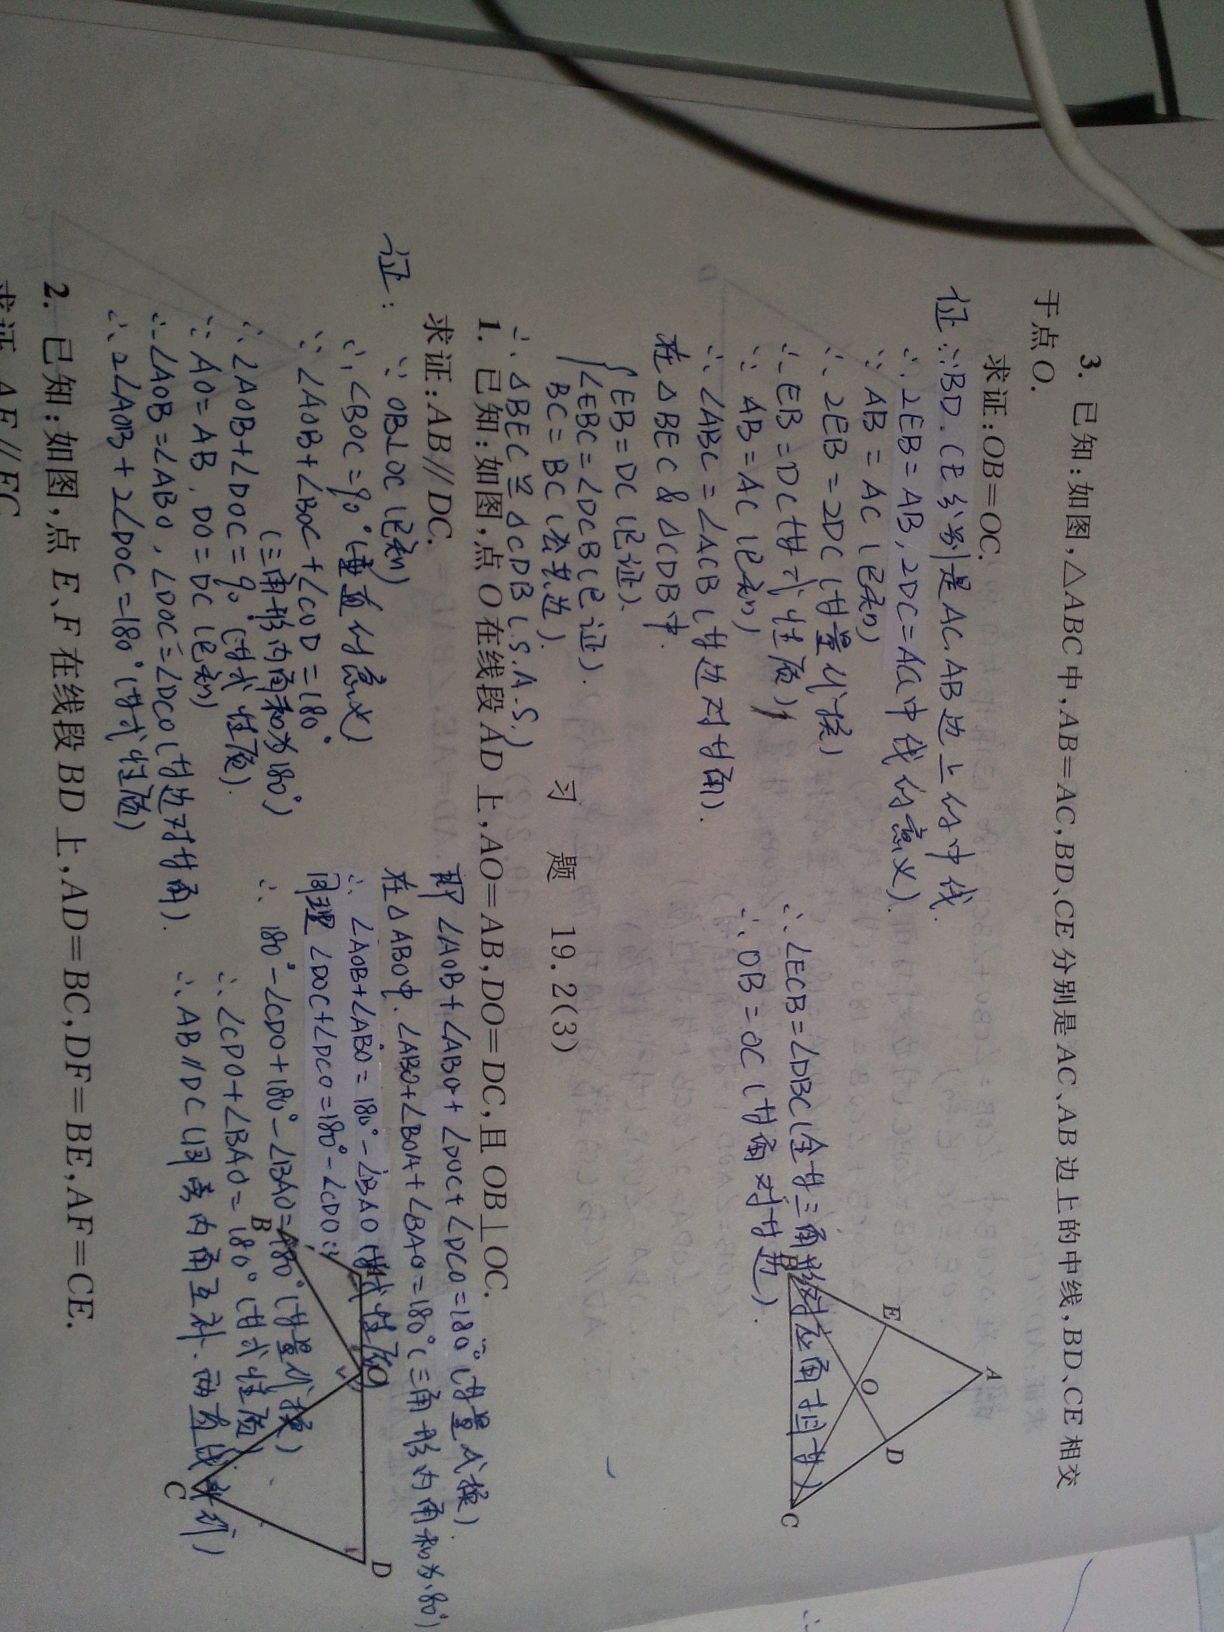 3. 已知:如图,△ABC中,AB=AC,BD、CE分别是AC、AB边上的中线,BD、CE相交
于点O.
求证:OB=OC.
证:∵BD、CE分别是AC、AB边上的中线.
∴2EB=AB,2DC=AC(中线的意义).
∵AB=AC(已知)
∴2EB=2DC(等量代换)
∴EB=DC(等式性质)
∵AB=AC(已知)
∴∠ABC=∠ACB(等边对等角).
在△BEC&△CDB中
EB=DC(已证).
∠EBC=∠DCB(已证).
BC=BC(公共边).
∴△BEC≌△CDB(S.A.S.)
∴∠ECB=∠DBC(全等三角形对应角相等)
∴OB=OC(等角对等边).
A
E
D
O
B
C
习题 19.2(3)
1. 已知:如图,点O在线段AD上,AO=AB,DO=DC,且OB⊥OC.
求证:AB∥DC.
证:∵OB⊥OC(已知)
∴∠BOC=90°(垂直的意义)
∵∠AOB+∠BOC+∠COD=180°
(三角形内角和为180°)
∴∠AOB+∠DOC=90(等式性质).
∵AO=AB,DO=DC(已知)
∴∠AOB=∠ABO,∠DOC=∠DCO(等边对等角).
∴2∠AOB+2∠DOC=180°(等式性质)
即∠AOB+∠ABO+∠DOC+∠DCO=180°(等量代换).
在△ABO中.∠ABO+∠BOA+∠BAO=180°(三角形内角和为180°)
∴∠AOB+∠ABO=180°-∠BAO(等式性质)
同理∠DOC+∠DCO=180°-∠CDO
∴180°-∠CDO+180°-∠BAO=180°(等量代换)
∴∠CDO+∠BAO=180°(等式性质)
∴AB∥DC(同旁内角互补.两直线平行)
B
O
C
D
2. 已知:如图,点E、F在线段BD上,AD=BC,DF=BE,AF=CE.
求证 AF∥EC